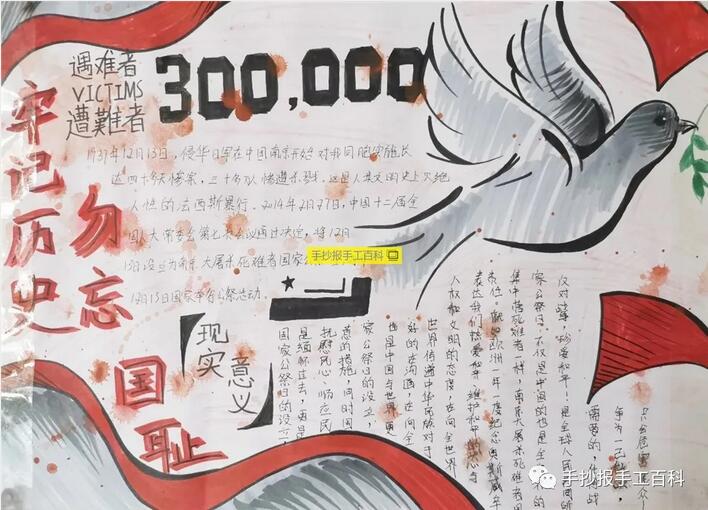 遇难者
VICTIMS
遭難者
300,000
牢记历史
勿忘
国耻
1937年12月13日，侵华日军在中国南京开始对我同胞实施长
达四十多天惨案，三十多万人惨遭杀戮，这是人类文明史上灭绝
人性的法西斯暴行。2014年2月27日，中国十二届全
国人大常委会第七次会议通过决定，将12月
13日设立为南京大屠杀死难者国家公
12月13日国家举行公祭活动。
手抄报手工百科
现实意义
反对战争，珍爱和平！是全球人民共同的
家公祭日，不仅是中国的也是全
集中营死难者一样，南京大屠杀死难者国
表达我们热爱和平、维护和平的决心与
人权和文明的态度，在向全世界
世界传递中华民族对于
好的在沟通，在向全
也是中国与世界更
家公祭日的设立，
意的措施，同时国
抚慰民心、顺应民
是缅怀过去，更是
国家公祭日的设立
手抄报手工百科